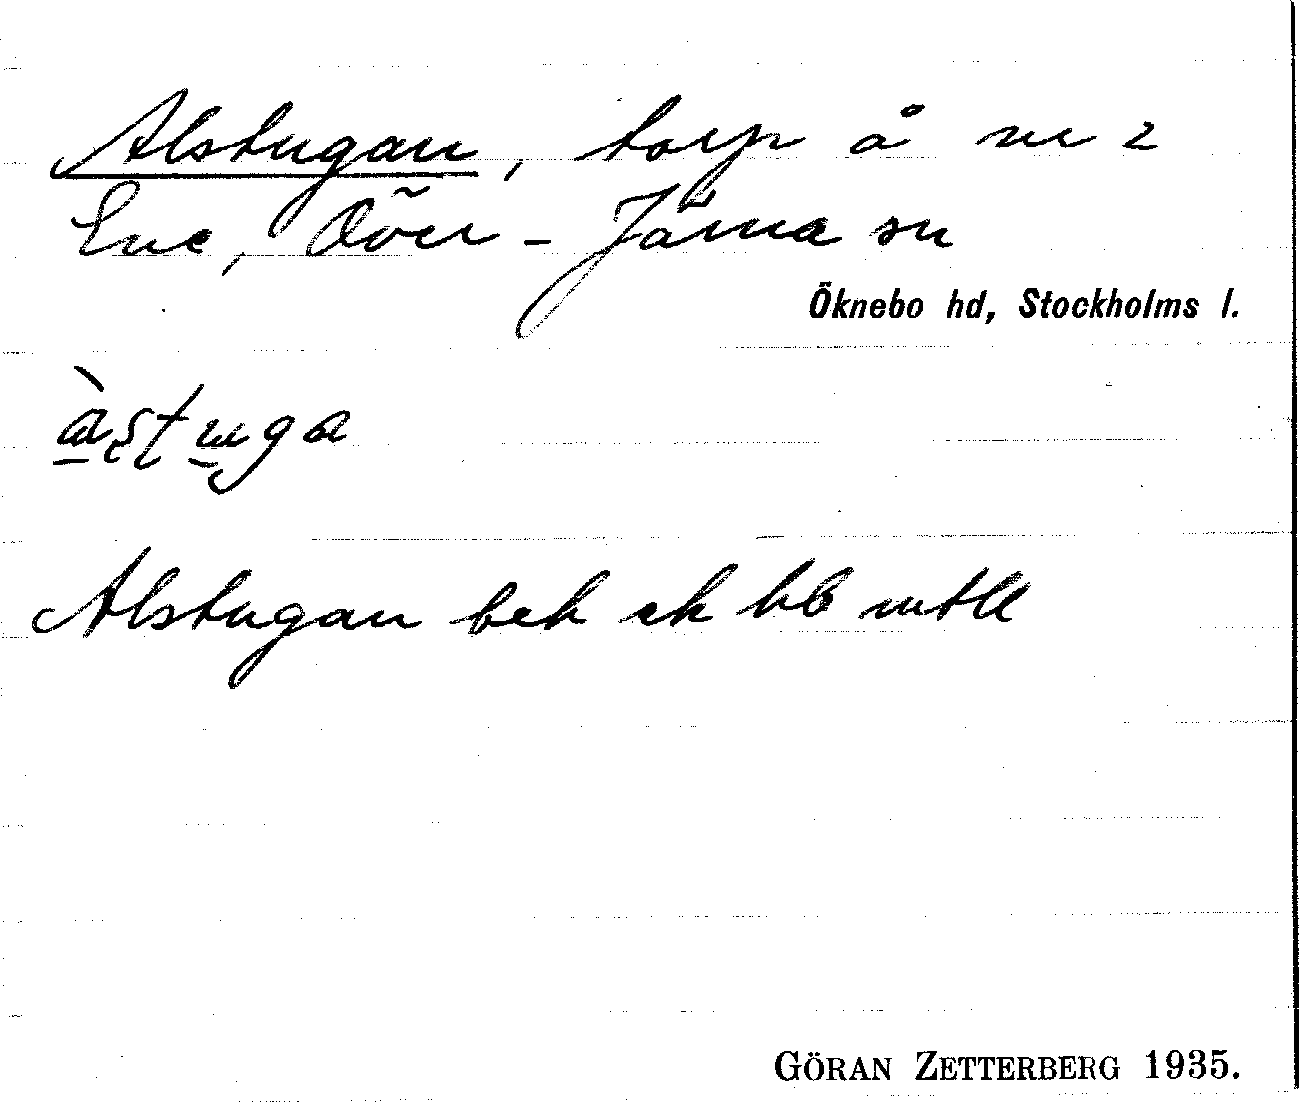 Alstugan, torp å nr 2
Ene, Över-Järna sn
Öknebo hd, Stockholms l.
Alstugan bek ek hb mtll
GÖRAN ZETTERBERG 1935.